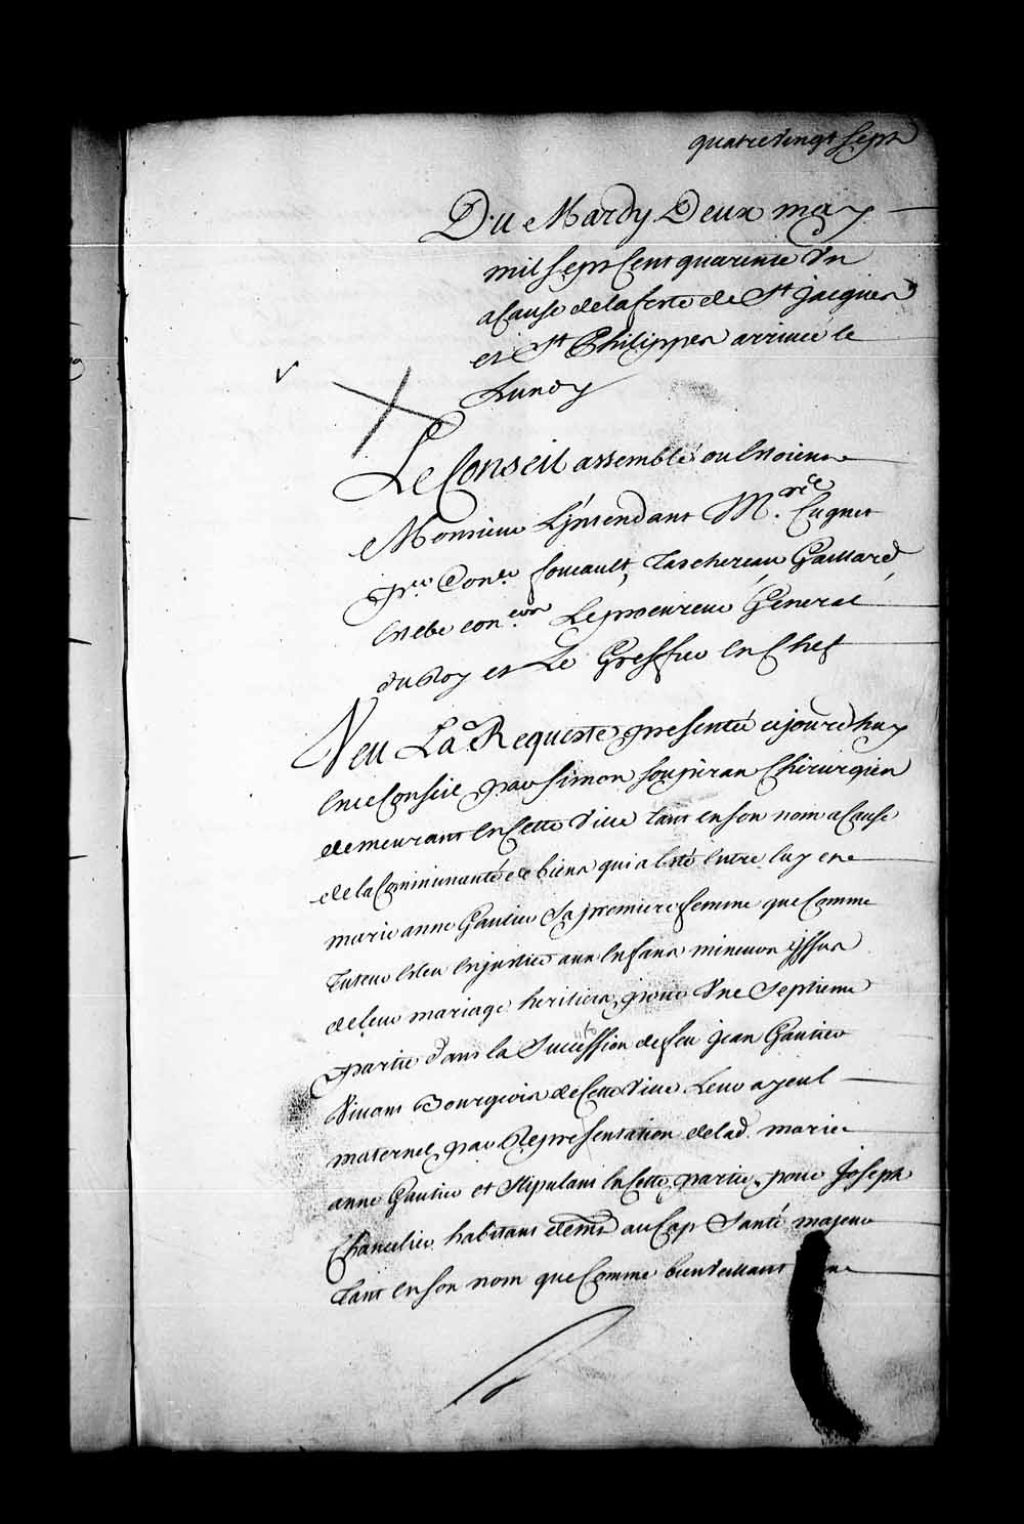 quatre vingt sept
Du Mardy Deux may
mil sept Cent quarente Un
a Cause de la feste de St Jacques
et St Philippes arrivée le
Lundy
Le Conseil assemblé ou Estoient
Monsieur L'jntendant M.re Cugnet
pr.er Con.er foucault, Taschereau Gaillard,
Estebe con.ers Le procureur General
du Roy et Le Greffier En Chef
Veu La Requeste presentée cejourd'huy
En ce Conseil par Simon Soupiran Chirurgien
demeurant En Cette Ville tant en son nom a Cause
de la Communauté de biens qui a Esté Entre luy et
marie anne Gautier Sa premiere femme que Comme
Tuteur Eleu En justice aux Enfans mineurs issus
de leur mariage heritiers pour Une Septieme
partie dans la Succession de feu Jean Gautier
Vivant Bourgeois de Cette Ville Leur ayeul
maternel par Representation de lad. marie
anne Gautier et Stipulant En Cette partie pour Joseph
Chancelier habitant dem.t au Cap Santé majeur
Tant En Son nom que Comme bienveillant